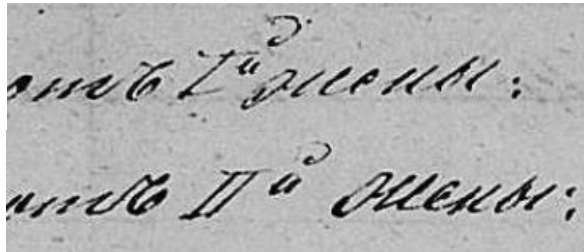 отъ Iй жены:
отъ IIй жены: